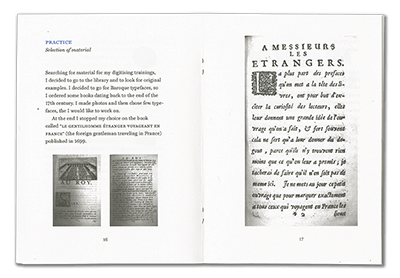 PRACTICE
Selection of material
Searching for material for my digitising trainings,
I decided to go to the library and to look for original
examples. I decided to go for Baroque typefaces, so
I ordered some books dating back to the end of the
17th century. I made photos and then chose few type-
faces, the I would like to work on.
At the end I stopped my choice on the book
called "LE GENTILHOMME ÉTRANGER VOYAGEANT EN
FRANCE" (the foreign gentleman traveling in France)
published in 1699.
AU ROY.
16
A MESSIEURS
LES
ETRANGERS.
La plus part des prefaces
qu'on met à la tête des li-
vres, ont pour but d'exci-
ter la curiosité des lecteurs, elles
leur donnent une grande idée de l'ou-
vrage qu'on a fait, & fort souvent
cela ne sert qu'a leur donner du de-
goust, quand ils n'y trouvent rien
moins que ce qu'on leur a promis; je
tacherai de faire qu'il n'en soit pas de
meme ici. Je ne mets au jour ce petit
ouvrage que pour marquer exactement
a tous ceux qui voyagent en France les
lieux
17